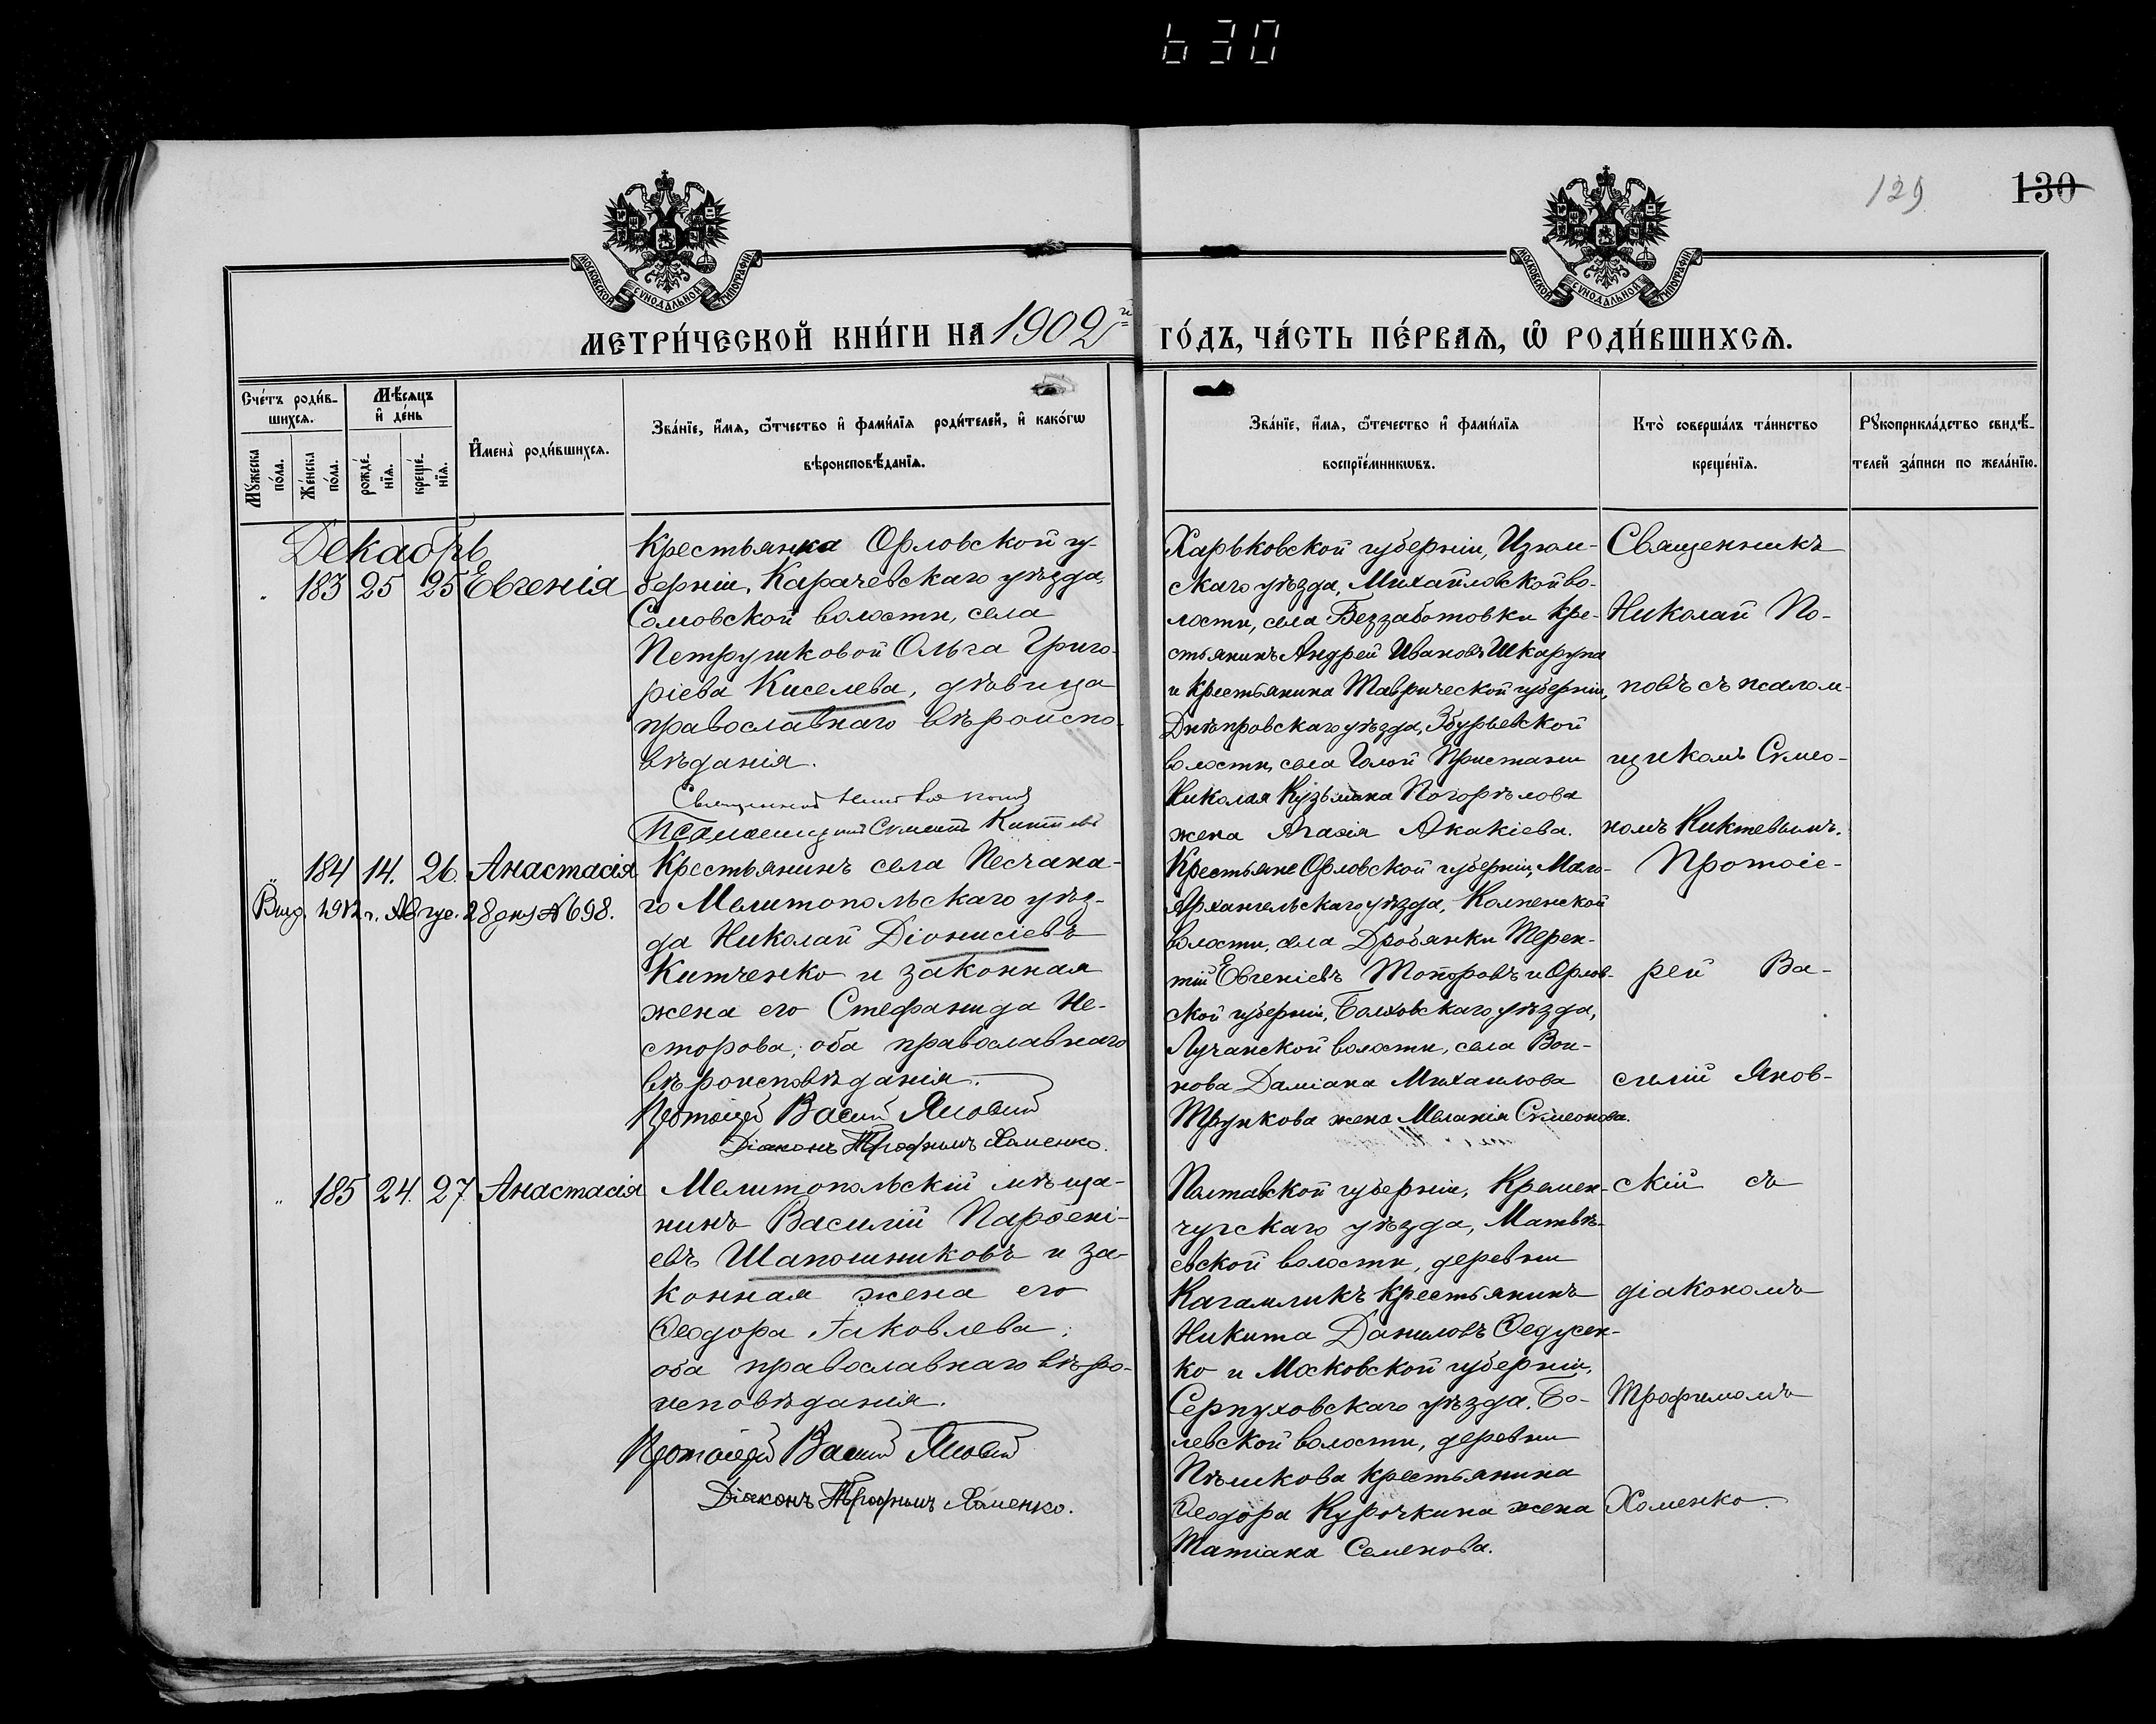 630
129
130
МОСКОВСКОЙ СѴНОДАЛЬНОЙ ТИПОГРАФІИ
МОСКОВСКОЙ СѴНОДАЛЬНОЙ ТИПОГРАФІИ
МЕТРИ́ЧЕСКОЙ КНИ́ГИ НА 1902й ГО́ДЪ, ЧА́СТЬ ПЕ́РВАѦ, Ѡ҆ РОДИ́ВШИХСѦ.
Сче́тъ роди́в-
шихсѧ.
Мꙋ́жеска по́ла.
Же́нска по́ла.
Мѣ́сѧцъ
и҆ де́нь
рожде́-
нїѧ.
креще́-
нїѧ.
И҆мена̀ роди́вшихсѧ.
Зва́нїе, и҆́мѧ, ѻ҆́тчество и҆ фами́лїѧ роди́телей, и҆ како́гѡ
вѣроисповѣ́данїѧ.
Зва́нїе, и҆́мѧ, ѻ҆те́чество и҆ фами́лїѧ
воспрїе́мникѡвъ.
Кто̀ соверша́лъ та́инство
креще́нїѧ.
Рꙋкоприкла́дство свидѣ́-
телей за́писи по жела́нїю.
Декабрь
183 25 25 Евгенія
Крестьянка Орловской гу-
берніи, Карачевскаго уѣзда,
Сомовской волости, села
Петрушковой Ольга Григо-
ріева Киселева, дѣвица
православнаго вѣроиспо-
вѣданія.
Священникъ Николай Поповъ
Псаломщикъ Симеонъ Киктевъ
Харьковской губерніи, Изюм-
скаго уѣзда, Михайловской во-
лости, села Беззаботовки кре-
стьянинъ Андрей Ивановъ Шкарупа
и крестьянина Таврической губерніи,
Днѣпровскаго уѣзда, Збурьевской
волости, села Голой Пристани
Николая Кузьмина Погорѣлова
жена Агаѳія Акакіева.
Священникъ
Николай По-
повъ съ псалом-
щикомъ Симео-
номъ Киктевымъ.
" 184 14. 26. Анастасія
Выд. 1912 г. Авгус. 28 дня № 698.
Крестьянинъ села Песчана-
го Мелитопольскаго уѣз-
да Николай Діонисіевъ
Китченко и законная
жена его Стефанида Не-
сторова; оба православнаго
вѣроисповѣданія.
Протоіерей Василій Яновскій
Діаконъ Трофимъ Хоменко.
Крестьяне Орловской губерніи, Мало-
Архангельскаго уѣзда, Колпенской
волости, села Дробянки Терен-
тій Евгеніевъ Топоровъ и Орлов-
ской губерніи, Болховскаго уѣзда,
Лучанской волости, села Вои-
нова Даміана Михаилова
Трункова жена Меланія Симеонова.
Протоіе-
рей Ва-
силій Янов-
" 185 24. 27 Анастасія
Мелитопольскій мѣща-
нинъ Василій Парѳені-
евъ Шапошниковъ и за-
конная жена его
Ѳеодора Іаковлева;
оба православнаго вѣро-
исповѣданія.
Протоіерей Василій Яновскій
Діаконъ Трофимъ Хоменко.
Полтавской губерніи, Кремен-
чугскаго уѣзда, Матвѣ-
евской волости, деревни
Кагамликъ крестьянинъ
Никита Даниловъ Ѳедусен-
ко и Московской губерніи,
Серпуховскаго уѣзда, Бо-
левской волости, деревни
Пѣшкова крестьянина
Ѳеодора Курочкина жена
Татіана Семенова.
скій съ
діакономъ
Трофимомъ
Хоменко.